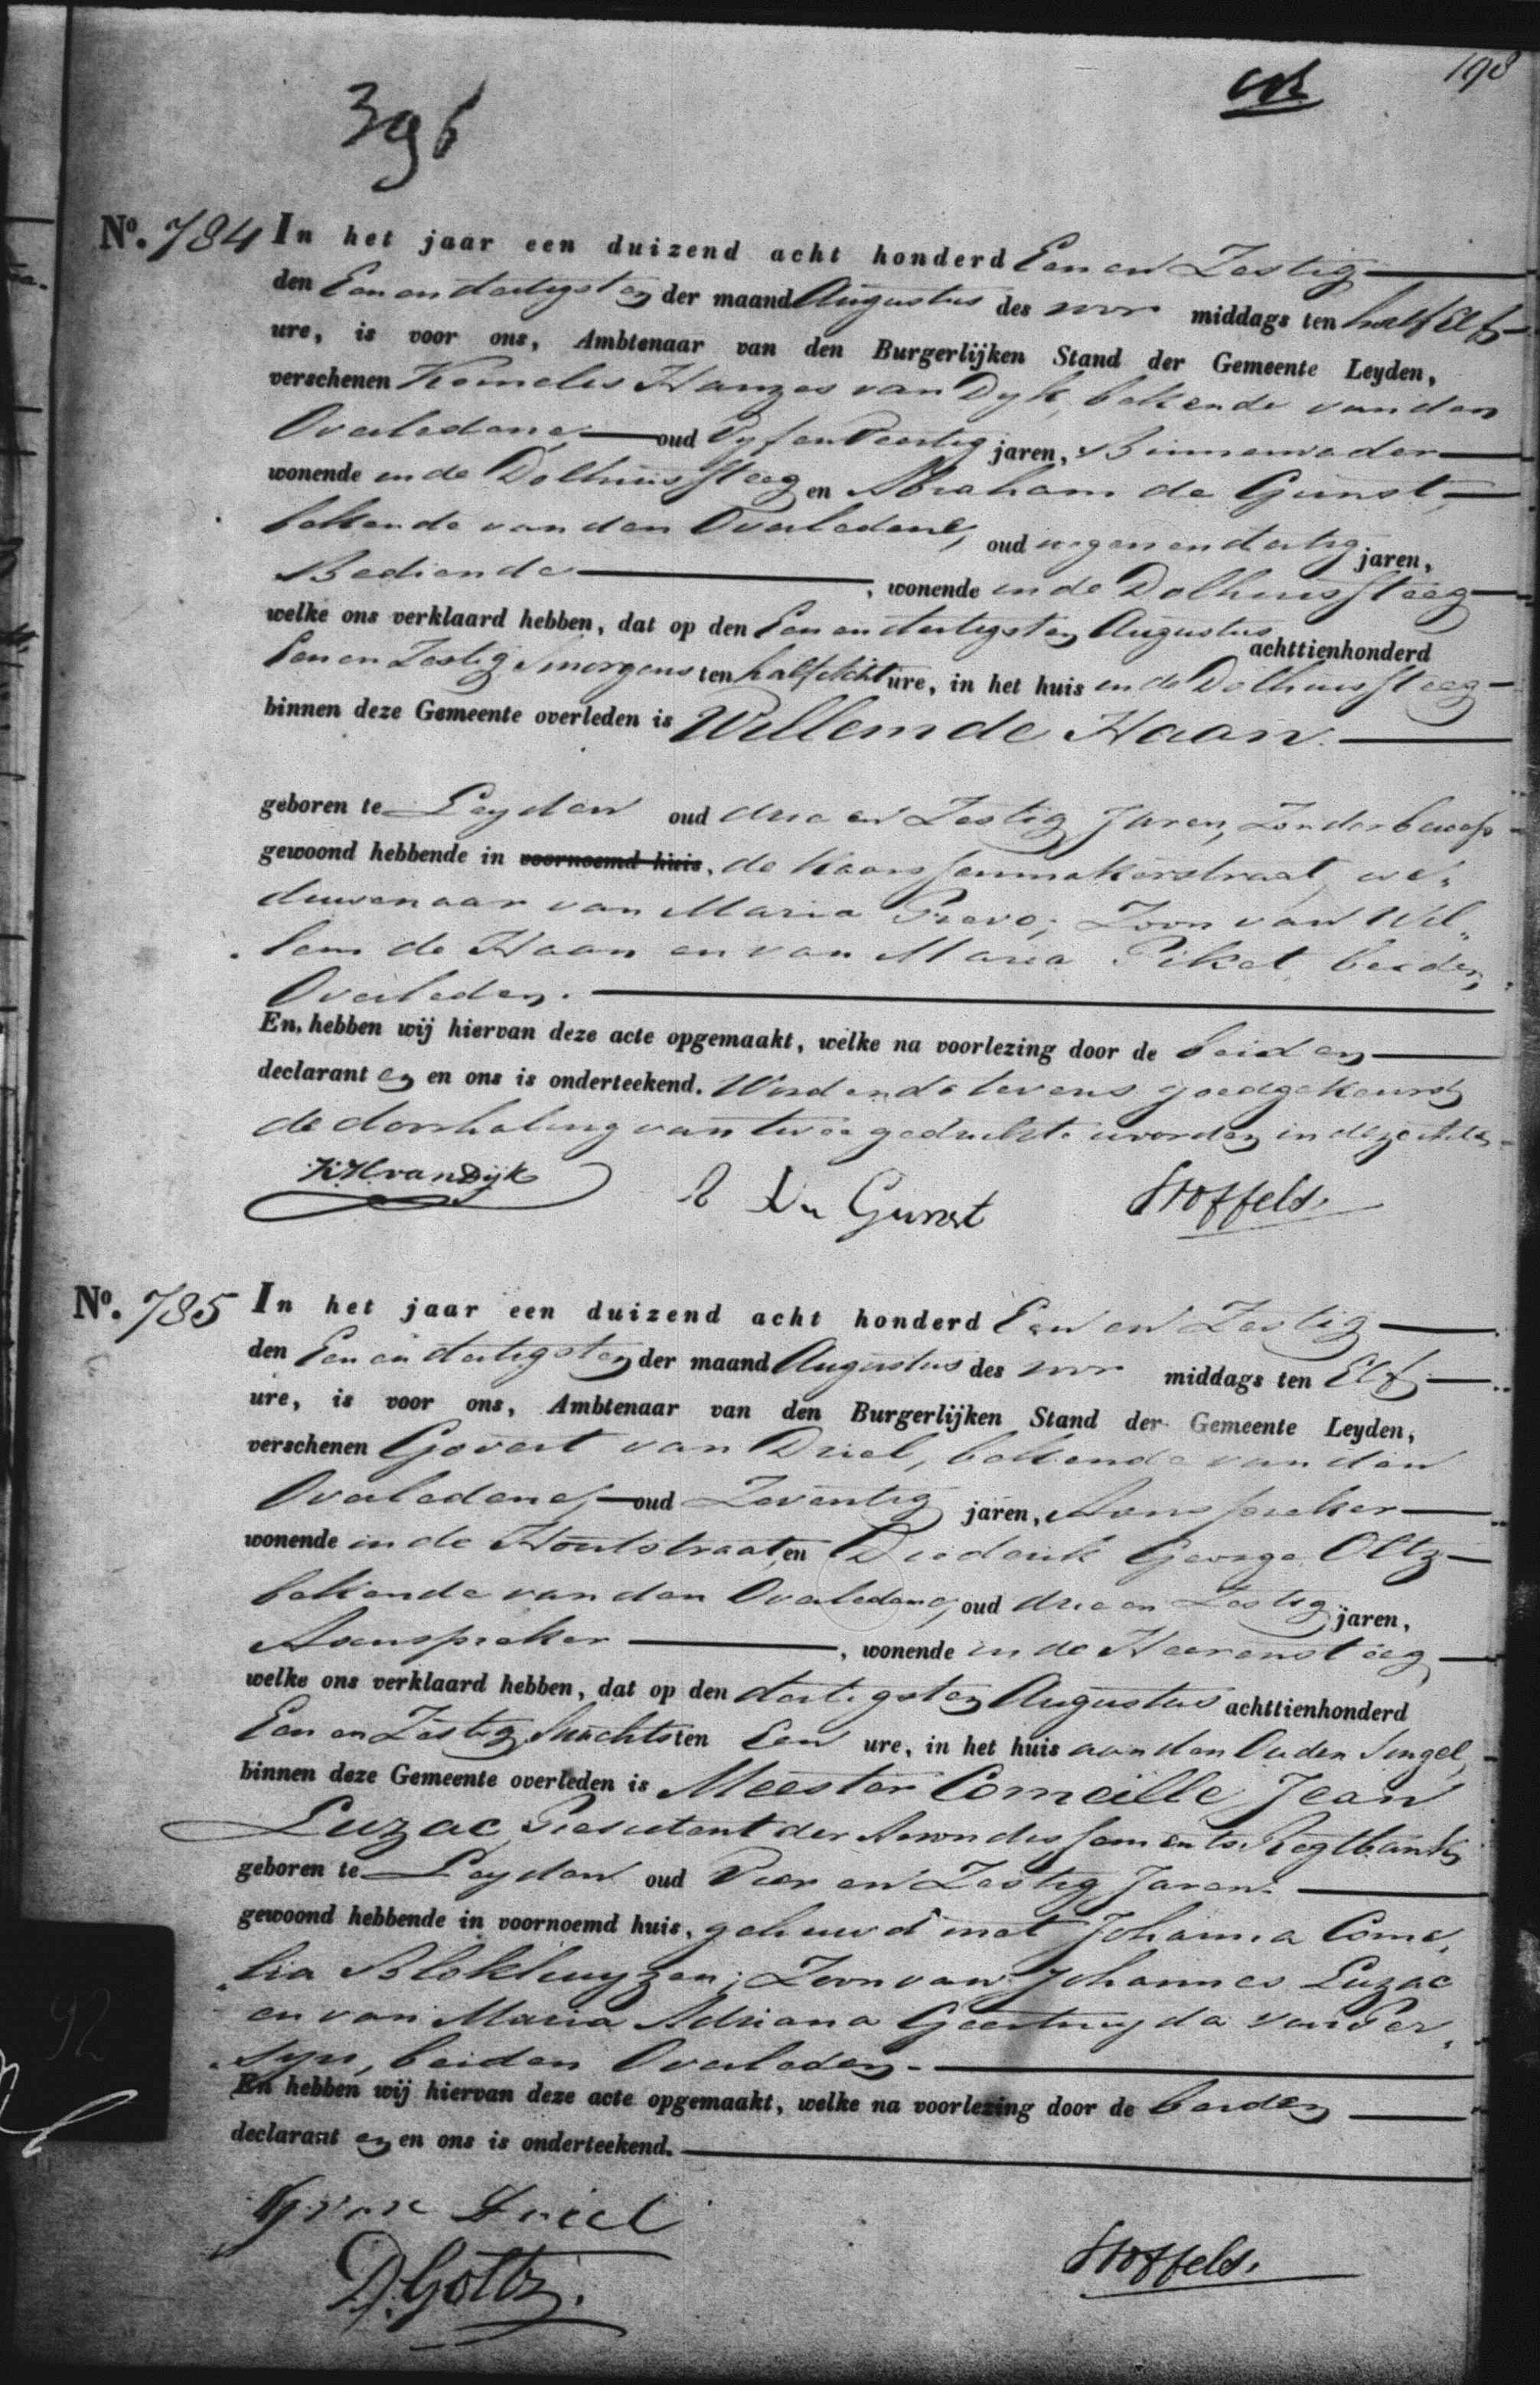 198
396
No. 784 In het jaar een duizend acht honderd Een en Zestig
den Een en dertigsten der maand Augustus des voor middags ten half Elf
ure, is voor ons, Ambtenaar van den Burgerlijken Stand der Gemeente Leyden,
verschenen Kornelis Hanzes van Dyk, bekende van den
Overledene, oud Vyf en Veertig jaren, Binnenvader
wonende in de Dolhuissteeg en Abraham de Gunst,
bekende van den Overledene, oud negen en dertig jaren,
Bediende, wonende in de Dolhuissteeg
welke ons verklaard hebben, dat op den Een en dertigsten Augustus achttienhonderd
Een en Zestig Smorgens ten half Acht ure, in het huis in de Dolhuissteeg
binnen deze Gemeente overleden is Willem de Haan.
geboren te Leyden oud drie en Zestig Jaren, Zonder beroep
gewoond hebbende in voornoemd huis, de Kaarssenmakerstraat, we„
duwenaar van Maria Prevo; Zoon van Wil„
„lem de Haan en van Maria Piket, beiden
Overleden.
En hebben wij hiervan deze acte opgemaakt, welke na voorlezing door de beiden
declarant en en ons is onderteekend. Wordende tevens goedgekeurd
de doorhaling van twee gedrukte woorden in deze Acte
K.H. van Dijk
A De Gunst
Stoffels.
No. 785 In het jaar een duizend acht honderd Een en Zestig
den Een en dertigsten der maand Augustus des voor middags ten Elf
ure, is voor ons, Ambtenaar van den Burgerlijken Stand der Gemeente Leyden,
verschenen Govert van Driel, bekende van den
Overledene, oud Zeventig jaren, Aanspreker
wonende in de Houtstraat, en Diederik George Oltz
bekende van den Overledene, oud drie en Zestig jaren,
Aanspreker, wonende in de Heerensteeg
welke ons verklaard hebben, dat op den dertigsten Augustus achttienhonderd
Een en Zestig Snachts ten Een ure, in het huis aan den Ouden Singel,
binnen deze Gemeente overleden is Meester Corneille Jean
Luzac, President der Arrondissements Regtbank
geboren te Leyden oud Vier en Zestig Jaren.
gewoond hebbende in voornoemd huis, gehuwd met Johanna Corne„
„lia Blokhuyzen; Zoon van Johannes Luzac
en van Maria Adriana Geertruyda van Per„
„syn, beiden Overleden.
En hebben wij hiervan deze acte opgemaakt, welke na voorlezing door de beiden
declarant en en ons is onderteekend.
G van Driel
D.G. Oltz.
Stoffels.
92